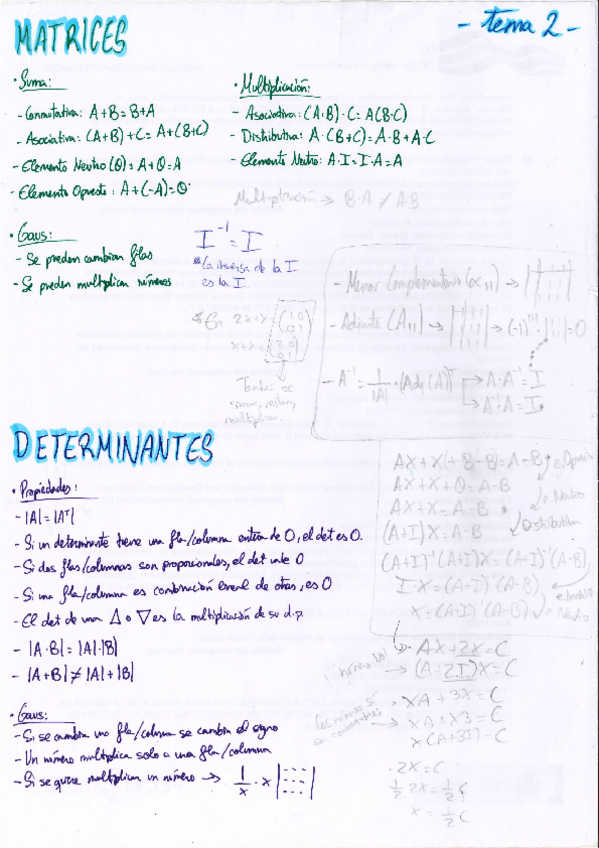 - tema 2 -
MATRICES
· Suma:
- Conmutativa: A+B=B+A
- Asociativa: (A+B)+C=A+(B+C)
- Elemento Neutro (0)=A+0=A
- Elemento Opuesto: A+(-A)=0
· Multiplicación:
- Asociativa: (A·B)·C=A(B·C)
- Distributiva: A·(B+C)=A·B+A·C
- Elemento Neutro: A·I=I·A=A
Multiplicación → B·A ≠ A·B
· Gaus:
- Se pueden cambiar filas
- Se pueden multiplicar números
I⁻¹=I
*La inversa de la I
es la I.
- Menor Complementario (α₁₁) →
- Adjunto (A₁₁) → → (-1)¹⁺¹· =0
- A⁻¹ = 1/|A| · (Adj(A))ᵀ → A·A⁻¹=I
→ A⁻¹·A=I
DETERMINANTES
· Propiedades:
- |A|=|Aᵀ|
- Si un determinante tiene una fila/columna entera de 0, el det es 0.
- Si dos filas/columnas son proporcionales, el det vale 0
- Si una fila/columna es combinación lineal de otras, es 0
- El det de una Δ o ∇ es la multiplicación de su d.p.
- |A·B|=|A|·|B|
- |A+B|≠|A|+|B|
· Gaus:
- Si se cambia una fila/colum se cambia el signo
- Un número multiplica solo a una fila/columna
- Si se quiere multiplicar un número → 1/x · x
AX+X(+B-B)=A-B e.Opuesto
AX+X+0=A-B e.Neutro
AX+X=A-B
(A+I)X=A-B Distributiva
(A+I)⁻¹(A+I)X=(A+I)⁻¹(A-B)
I·X=(A+I)⁻¹(A-B) e.Inverso
X=(A+I)⁻¹(A-B) e.Neutro
AX+2X=C
(A+2I)X=C
XA+3X=C
XA+X3=C
X(A+3I)=C
·2X=C
1/2 2X=1/2 C
X=1/2 C